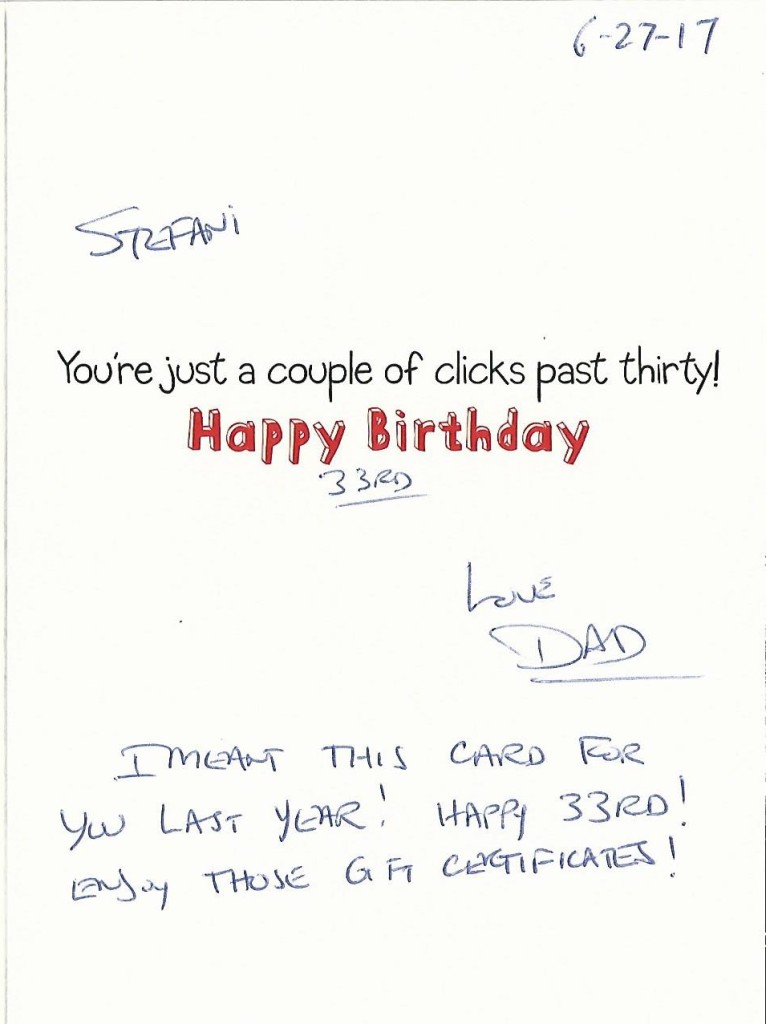 6-27-17
STEFANi
You're just a couple of clicks past thirty!
Happy Birthday
33RD
Love
DAD
I MEANT THIS CARD FOR
YOU LAST YEAR! HAPPY 33RD!
ENJOY THOSE GIFT CERTIFICATES!